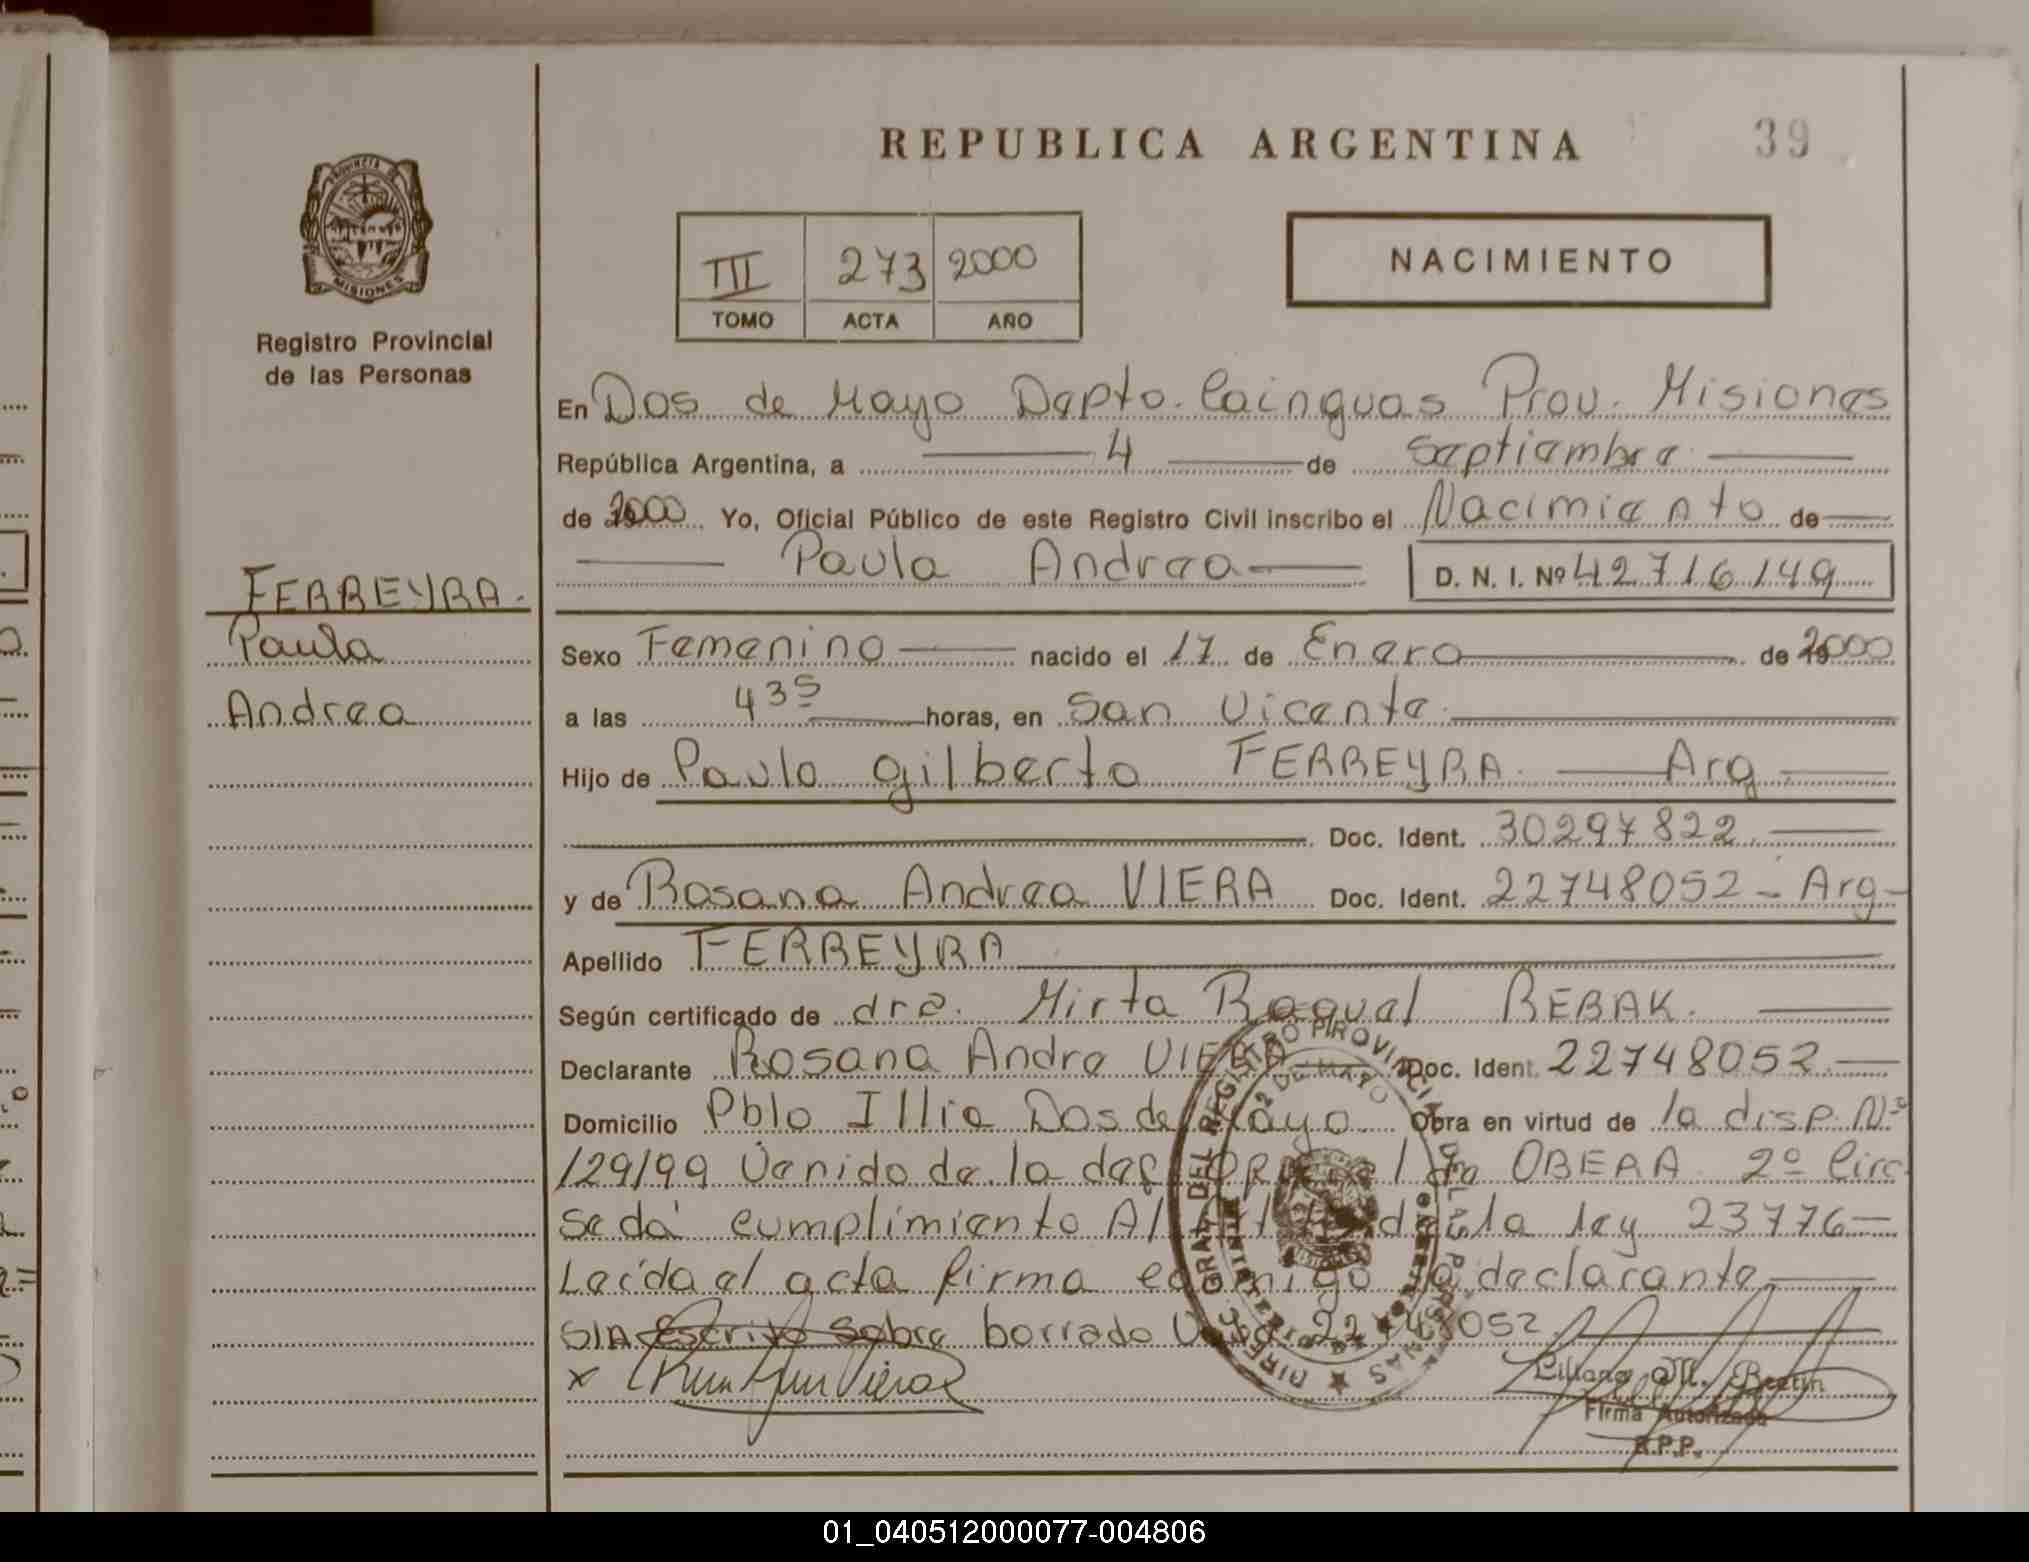 REPUBLICA ARGENTINA
39
PROVINCIA DE
MISIONES
Registro Provincial
de las Personas
III 273 2000
TOMO ACTA AÑO
NACIMIENTO
En Dos de Mayo Depto. Cainguas Prov. Misiones
República Argentina, a 4 de septiembre
de 2000 Yo, Oficial Público de este Registro Civil inscribo el Nacimiento de
Paula Andrea D. N. I. Nº 42716149
FERREYRA.
Paula
Andrea
Sexo Femenino nacido el 17 de Enero de 2000
a las 4 35 horas, en San Vicente
Hijo de Paulo Gilberto FERREYRA Arg
Doc. Ident. 30297822
y de Rosana Andrea VIERA Doc. Ident. 22748052 - Arg -
Apellido FERREYRA
Según certificado de dra. Mirta Raquel REBAK.
Declarante Rosana Andre VIERA Doc. Ident. 22748052
Domicilio Pblo Illia Dos de Mayo. Obra en virtud de la disp. Nº
129/99 Venido de la del de OBERA 2º Circ.
se dá cumplimiento Al de la ley 23776
Leída el acta firma conmigo la declarante
S/A Escrito sobre borrado 22748052
x
Liliana M.
Firma Autorizada
R.P.P.
01_040512000077-004806